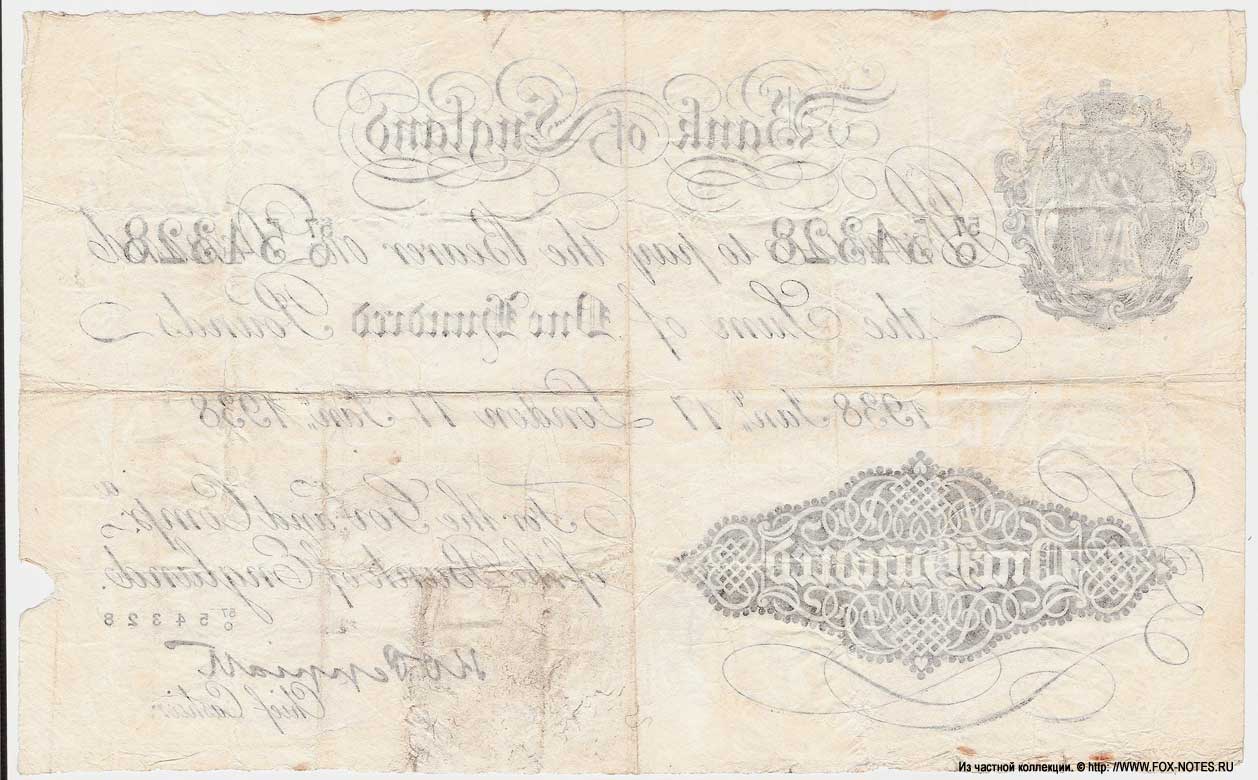 Bank of England
57/0 54328 to pay the Bearer on 57/0 54328
the Sum of One Hundred Pounds
1938 Jany. 17 London 17 Jany. 1938
For the Govr. and Compa.
of the Bank of England.
One Hundred
57/0 54328
Chief Cashier.
Из частной коллекции. © http: //WWW.FOX-NOTES.RU